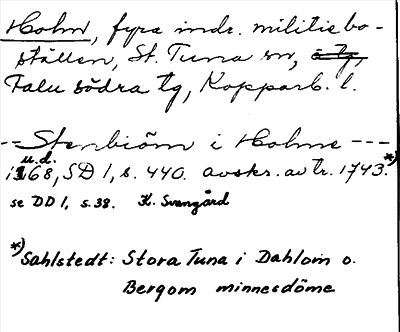 Holm, fyra indr. militiebo-
ställen, St. Tuna sn,
Falu södra tg, Kopparb. l.
-- Stenbiöm i Holme ---
u.d.
168, SD 1, s. 440. avskr. av tr. 1743.*)
se DD 1, s. 38. K. Svengård
*) Sahlstedt: Stora Tuna i Dahlom o.
Bergom minnesdöme